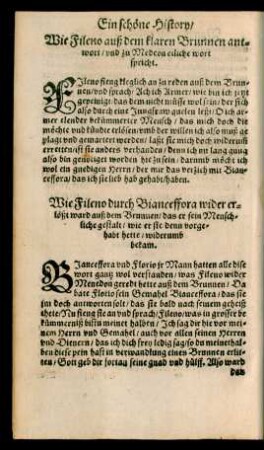 Ein schöne History/
Wie Fileno auß dem klaren Brunnen ant-
wort / vnd zu Medeon etliche wort
spricht.
FIleno fieng kleglich an zu reden auß dem Brun-
nen/vnd sprach/ Ach ich Armer/ wie bin ich jetzt
gepeiniget das dem nicht müsse wol sein/ der sich
also durch eine Junckfraw quelen leßt/ O ich ar-
mer elender bekümmerter Mensch / das mich doch dir
möchte vnd kündte erlösen/ vmb der willen ich also muß ge
plagt vnd gemartert werden/ laßt sie mich doch widerumb
erretten/ ist sie anders vorhanden/ denn ich nit lang gnug
also bin gepeiniget worden hie zu sein/ darumb möcht ich
wol ein gnedigen Herrn/ der mir das verzich mit Bian-
ceffora/ das ich sie lieb hab gehabt/haben.
Wie Fileno durch Bianceffora wider er-
lößt ward auß dem Brunnen/ das er sein Mensch-
liche gestalt / wie er sie denn vorge-
habt hette / widerumb
bekam.
BIanceffora vnd Florio jr Mann hatten alle dise
wort gantz wol verstanden/ was Fileno wider
Menedon geredt hette auß dem Brunnen/ Da
bate Florio sein Gemahel Bianceffora/ das sie
jm doch antworten solt/ das sie bald nach seinem geheiß
thete/ Nu fieng sie an vnd sprach/ Fileno/ was in grosser be
kümmerniß bistu meinet halben / Ich sag dir hie vor mei-
nem Herrn vnd Gemahel / auch vor allen seinen Herren
vnd Dienern / das ich dich frey ledig sag/ so du meinethal-
ben diese pein hast in verwandlung eines Brunnen erlit-
ten / Gott geb dir fortan seine gnad vnd hülff. Also ward
das